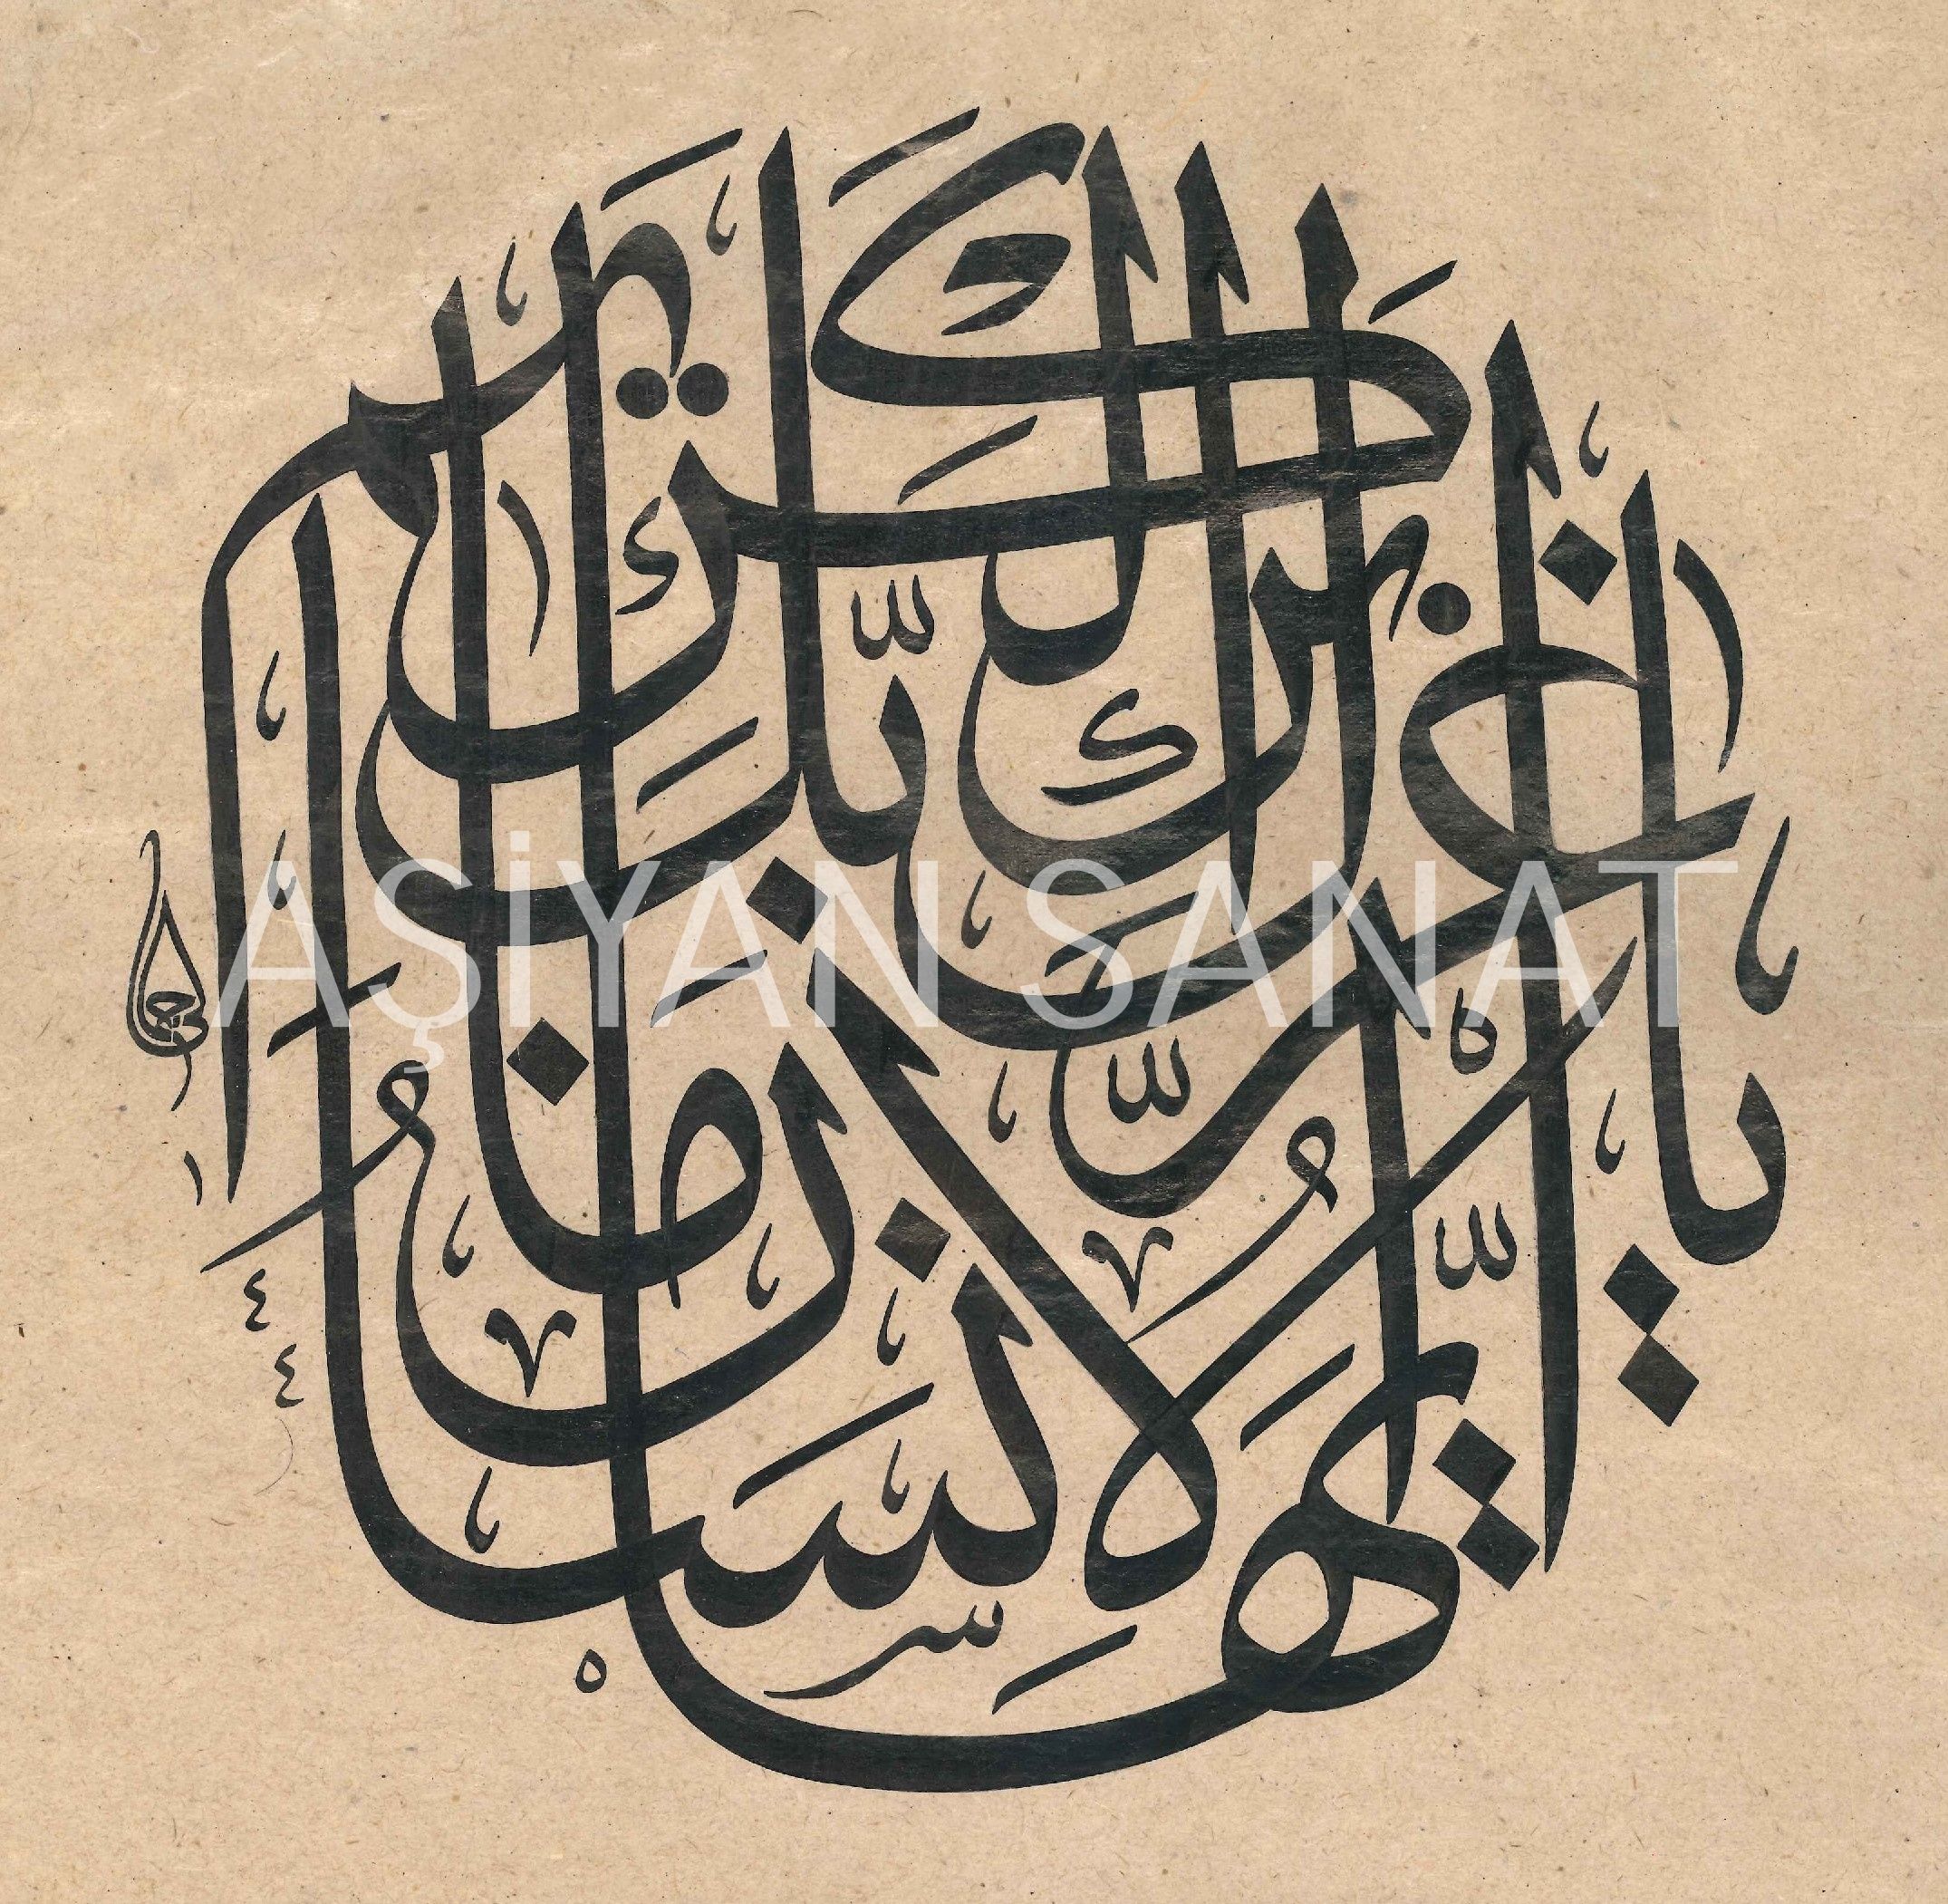 يَا أَيُّهَا الْإِنسَانُ مَا غَرَّكَ بِرَبِّكَ الْكَرِيمِ
١٤٤٥
AŞİYAN SANAT